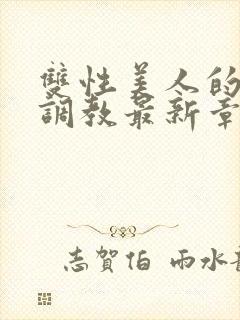 雙性美人的
調教最新章
志賀伯 雨水